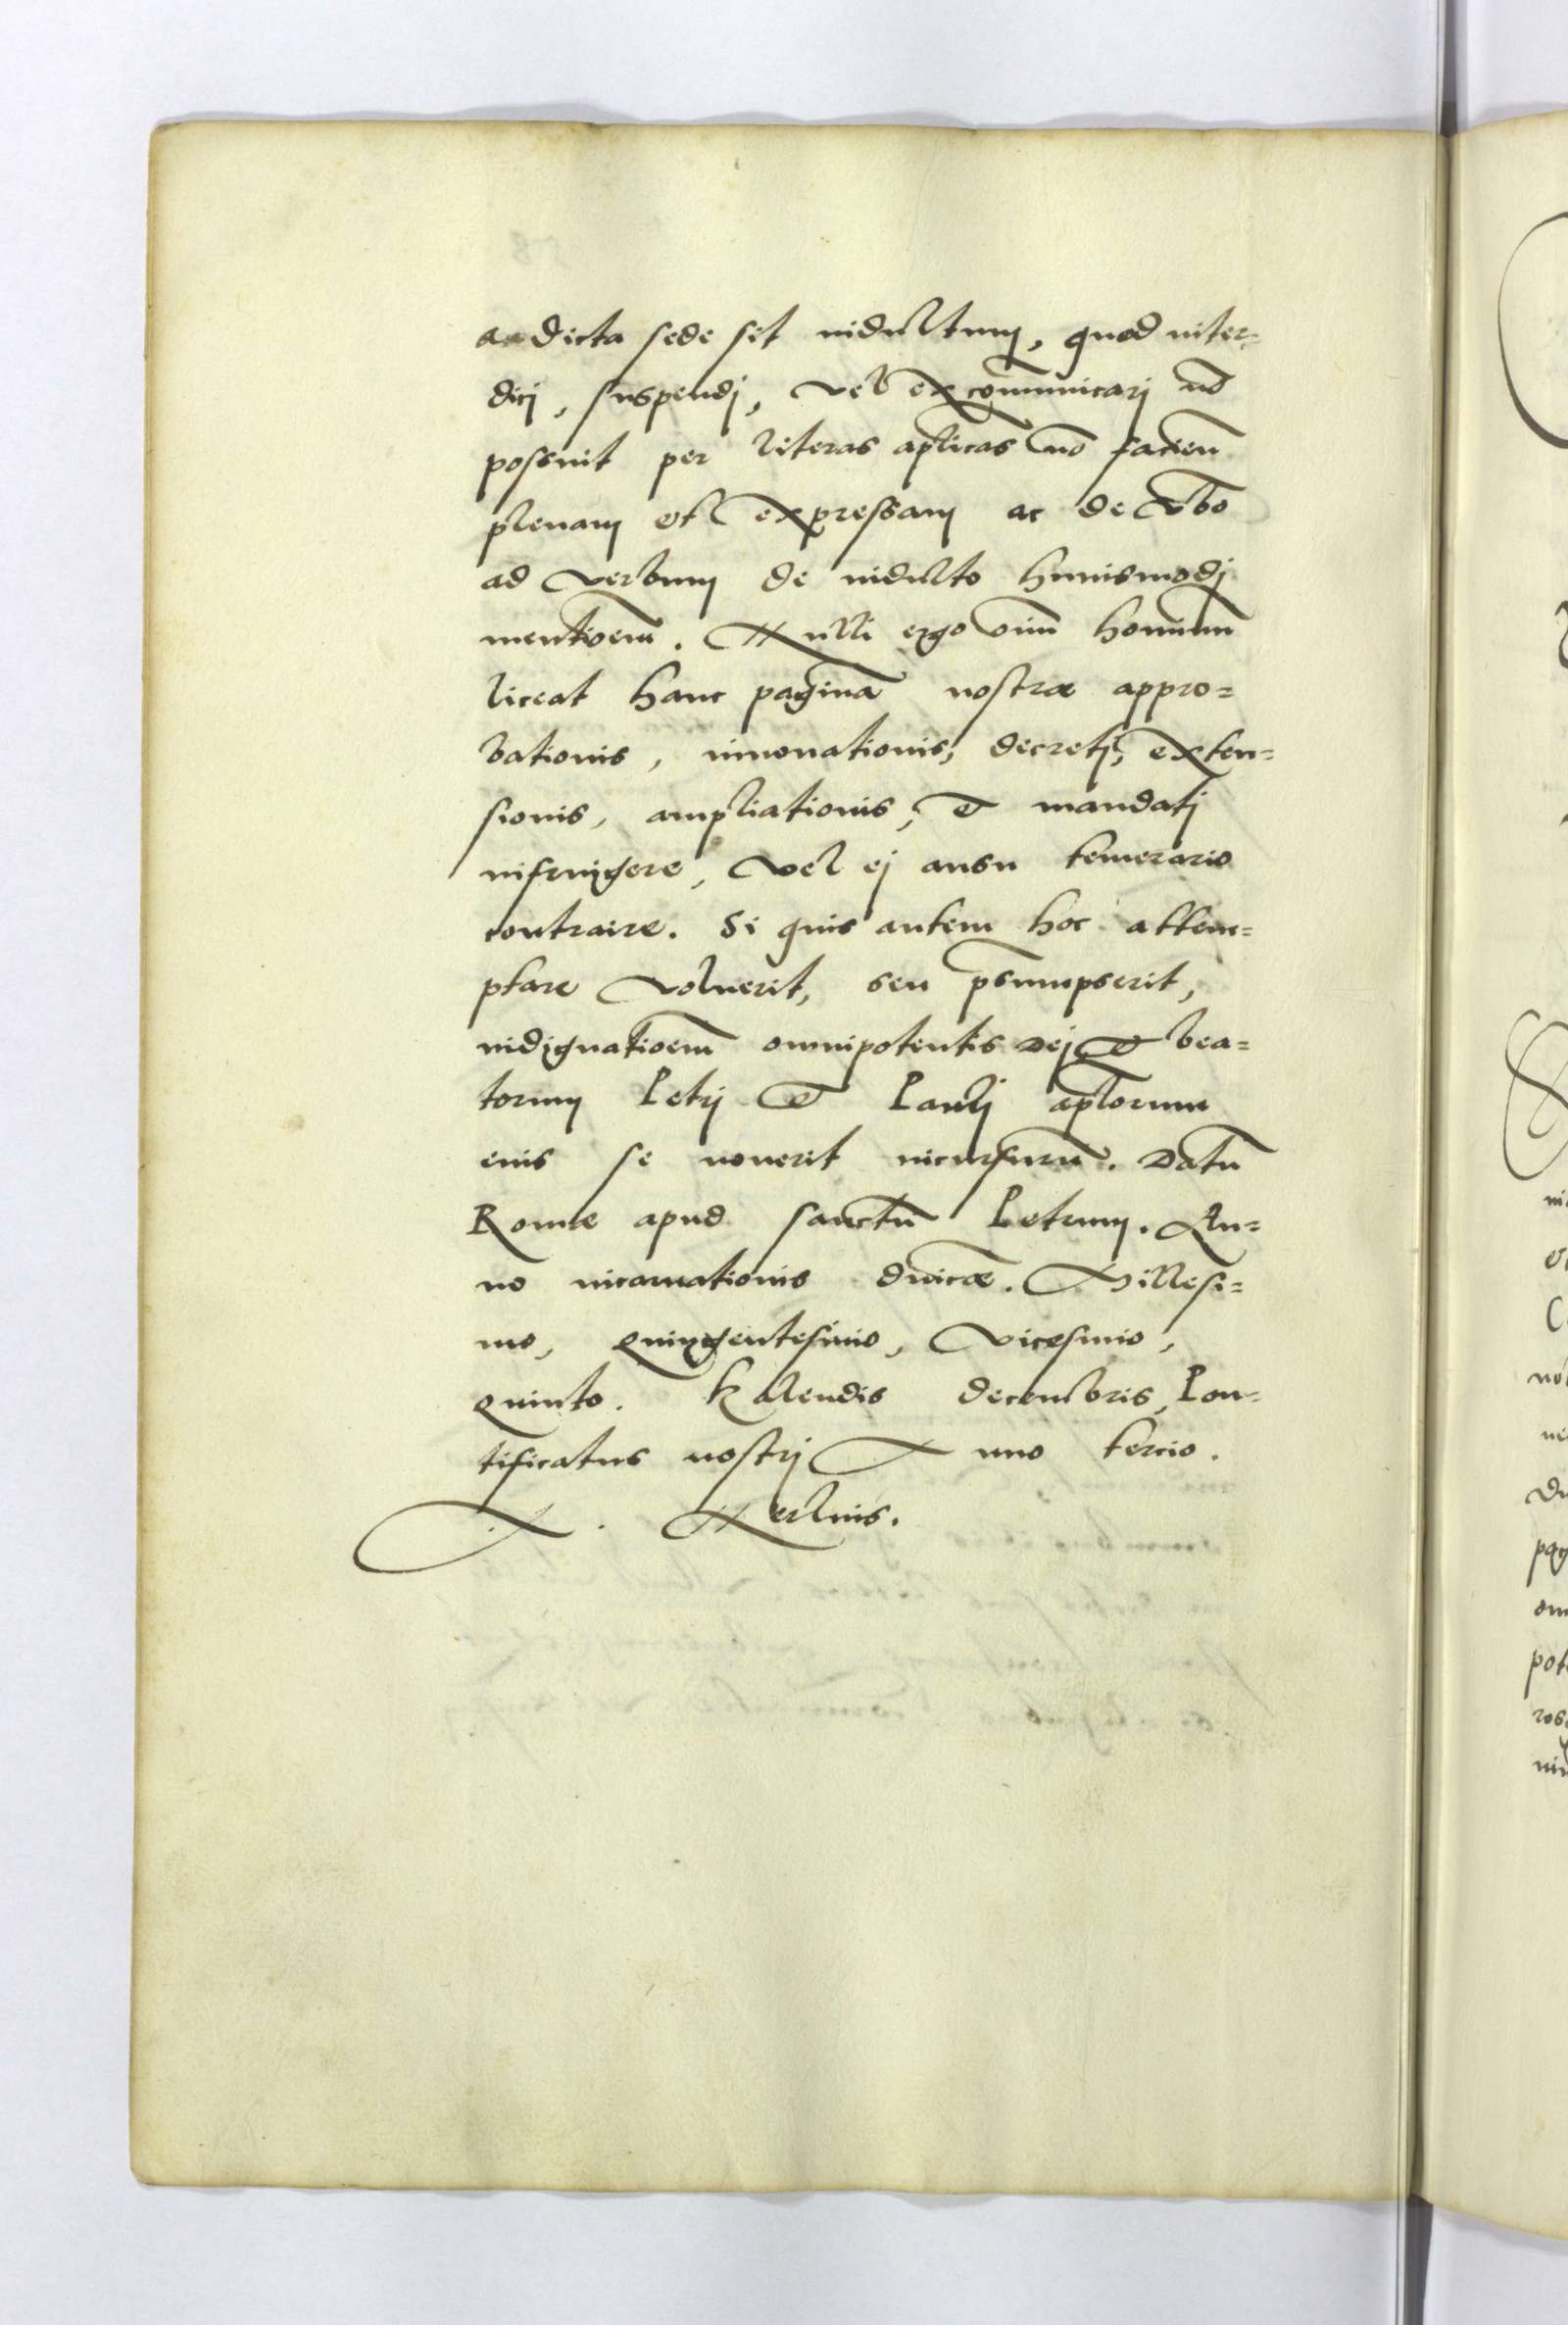 aadicta sede sit indultum, quod inter=
dicj, suspendj, vel excom̄unicarj nō
possint per literas aplicas nō facien̄
plenam et expressam ac de v̄bo
ad verbum de indulto huiusmodj
mentioem̄. Nulli ergo oīm hominum̄
liceat hanc paginā nostrae appro=
bationis, innouationis, decretj, exten=
sionis, ampliationis, et mandatj
infringere, vel ej ausu temerario
contraire. Si quis autem hoc attem=
ptare voluerit, seu p̄sumpserit,
indignatioem̄ omnipotentis Dej et bea=
torum Petrj et Paulj ap̄lorum
eius se nouerit incursurū. Datū
Romae apud sanctū Petrum. An=
no incarnationis dn̄icae. Millesi=
mo, quingentesimo, vicesimo,
quinto. Kalendis decembris, Pon=
tificatus nostrj Anno tercio.